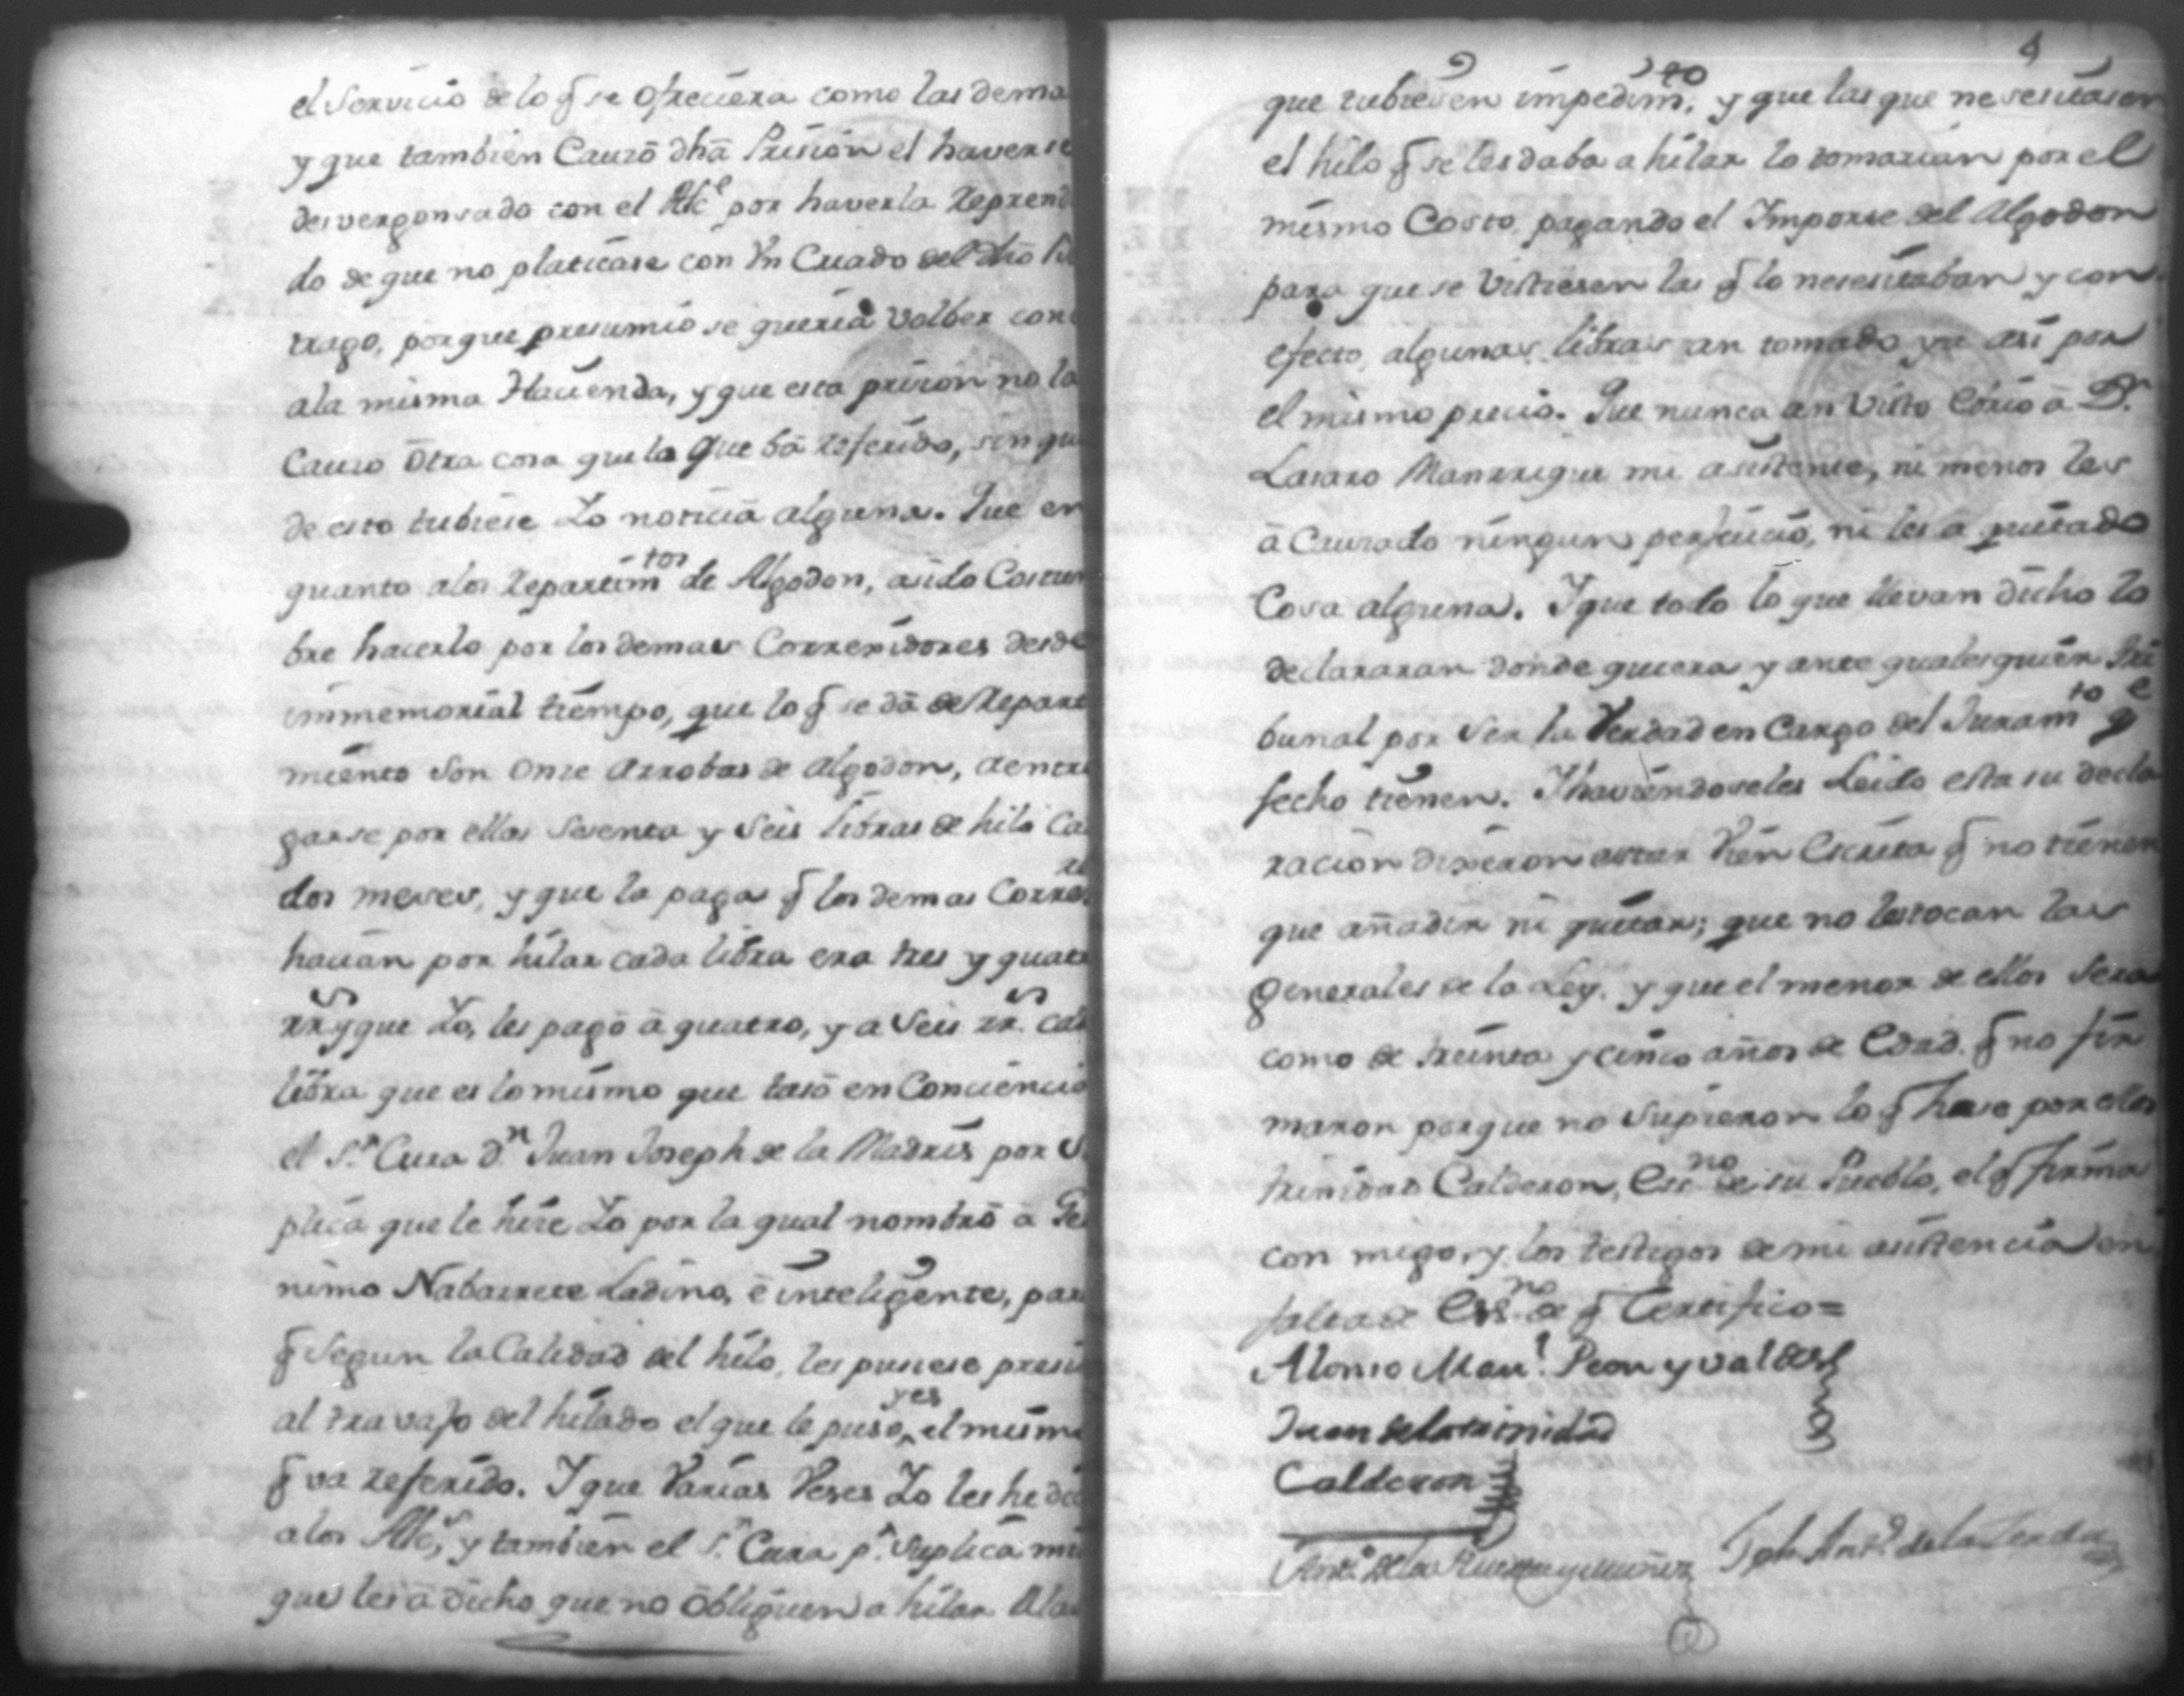 el Servicio de lo q̃ se ofreciera como las dema
y que tambien Cauzó dhã Prision el haverse
desvergonsado con el Alc.e por haverla reprend
do de que no platicase con Vn Criado del dho
trago, porque presumió se queria Volber con
ala misma Hacienda, y que esta prision no la
Causo otra cosa que la que bá referido, sin qu
de esto tubiese Yo noticia alguna. Que en
quanto alos repartim.tos de Algodon, asido Costum
bre hacerlo por los demas Correxidores desde
immemorial tiempo, que lo q̃ se dá de Repart
miento son onze arrobas de algodon, aentre
garse por ellas Sesenta y Seis libras de hilo Ca
dos meses, y que la paga q̃ los demas Corre.res
hacian por hilar cada libra era tres y quatr
rr.s y que Yo, les pagó á quatro, y a Seis rr.s cad
libra que es lo mismo que tasó en Conciencia
el S.r Cura D.n Juan Joseph de la Madris por S
plica que le hize Yo por la qual nombró á Ge
nimo Nabarrete Ladino, é inteligente, par
q̃ Segun la Calidad del hilo, les pusiese presi
al travajo del hilado el que le puso, yes el mism
q̃ va referido. Y que Varias Veses Yo les he di
alos Alc.s, y tambien el S.r Cura p.r Suplica mi
que les á dicho que no obliguen a hilar Ala
4
que tubiesen impedim.to y que las que nesesitasen
el hilo q̃ se les daba a hilar lo tomarian por el
mismo Costo, pagando el Importe del Algodon
para que se Vistiesen las q̃ lo nesesitaban y con
efecto, algunas libras an tomado ya asi por
el mismo precio. Que nunca an Visto Ebrio á D.n
Lasaro Manrrique mi asistente, ni menos les
á Causado ningun perjuicio, ni les á quitado
Cosa alguna. Y que todo lo que llevan dicho lo
declararan donde quiera y ante qualesquier Tri
bunal por Ser la Verdad en Cargo del Juram.to q.e
fecho tienen. Y haviendoseles Leido esta su decla
racion dixeron estar Vien Escrita q̃ no tienen
que añadir ni quitar; que no les tocan las
generales de la Ley. y que el menor de ellos Sera
como de treinta y cinco años de Edad. q̃ no fir
maron porque no Supieron lo q̃ haze por ellos
trinidad Calderon, Esc.no de su Pueblo, el q̃ firma
con migo, y los testigos de mi asistencia en
falta de Ess.no de q̃ Certifico=
Alonso Man.l Peon y valdes
Juan delatrinidad
Calderon
Ant.o de la y Muñoz
Jph Ant.o de la